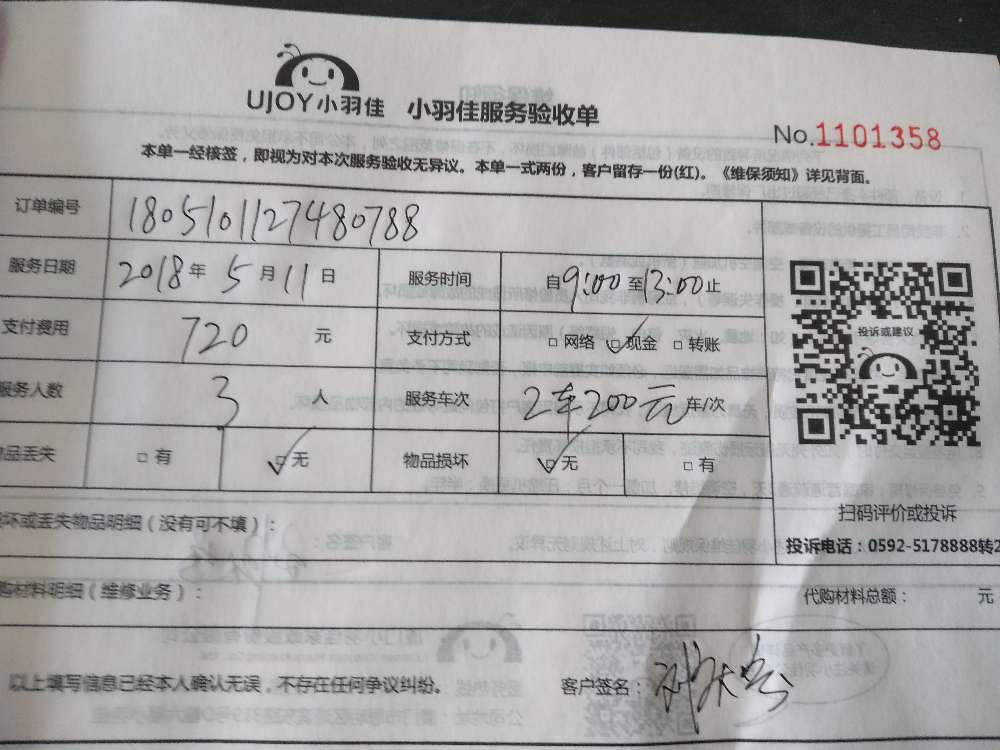 UJOY小羽佳 小羽佳服务验收单
No.1101358
本单一经核签，即视为对本次服务验收无异议。本单一式两份，客户留存一份(红)。《维保须知》详见背面。
订单编号 1805101127480788
服务日期 2018年5月11日 服务时间 自9:00至13:00止
支付费用 720元 支付方式 □网络 ☑现金 □转账
投诉或建议
服务人数 3人 服务车次 2车200元 车/次
品丢失 □有 ☑无 物品损坏 ☑无 □有
扫码评价或投诉
坏或丢失物品明细（没有可不填）：
投诉电话：0592-5178888转2
购材料明细（维修业务）： 代购材料总额： 元
以上填写信息已经本人确认无误，不存在任何争议纠纷。 客户签名：